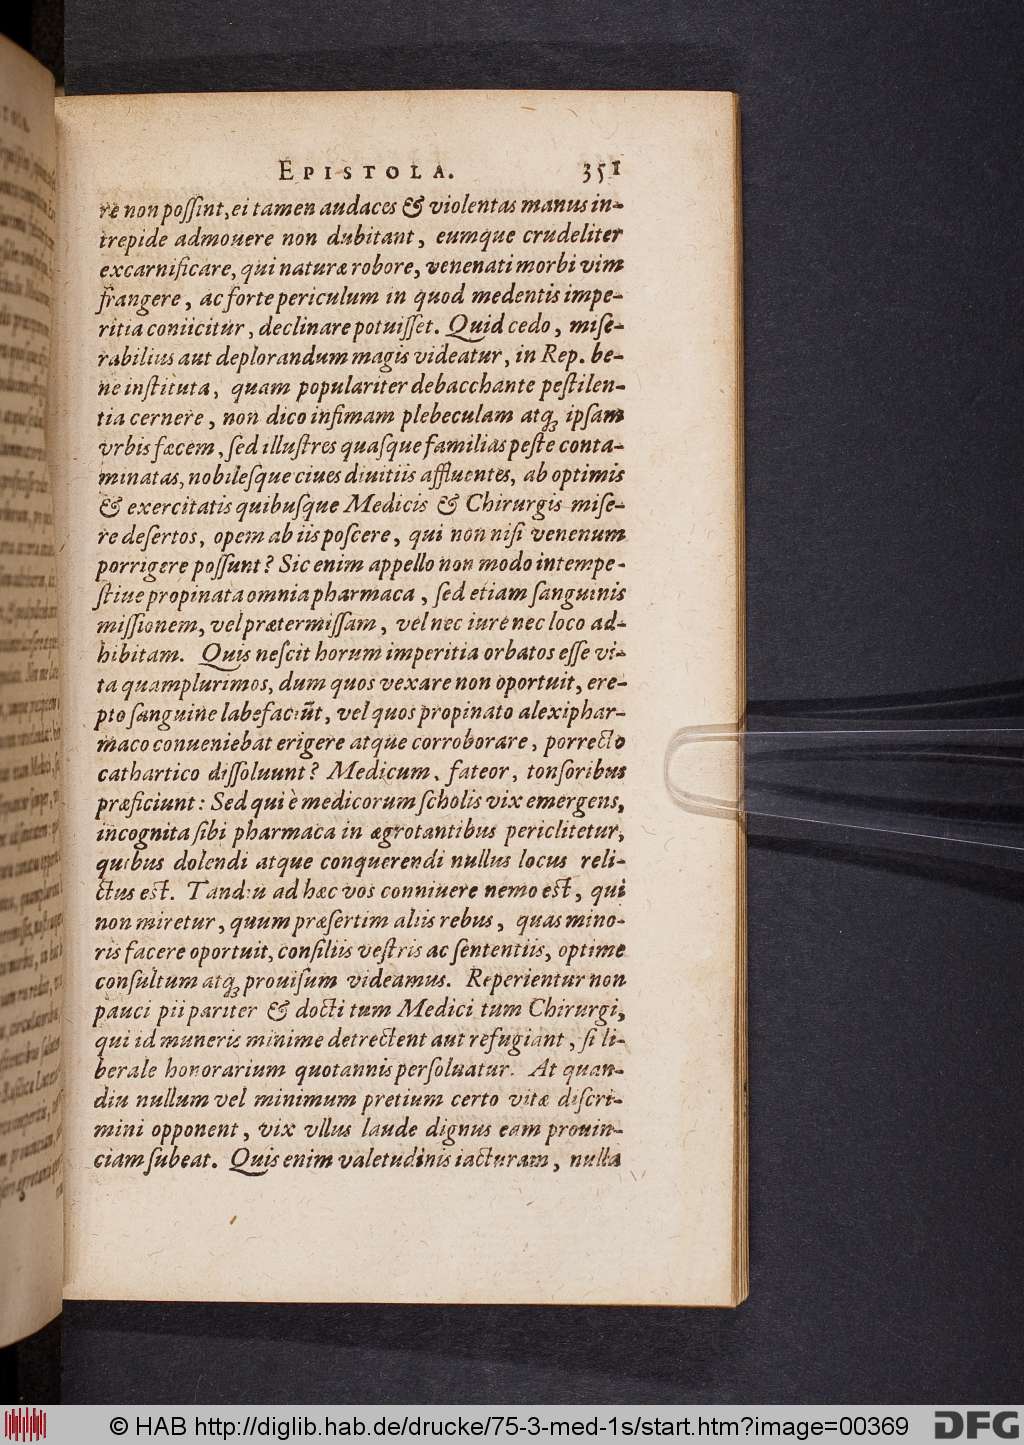 EPISTOLA. 351
re non possint, ei tamen audaces & violentas manus in-
trepide admouere non dubitant, eumque crudeliter
excarnificare, qui naturæ robore, venenati morbi vim
frangere, ac forte periculum in quod medentis impe-
ritia coniicitur, declinare potuisset. Quid cedo, mise-
rabilius aut deplorandum magis videatur, in Rep. be-
ne instituta, quam populariter debacchante pestilen-
tia cernere, non dico infimam plebeculam atq; ipsam
vrbis fæcem, sed illustres quasque familias peste conta-
minatas, nobilesque ciues diuitiis affluentes, ab optimis
& exercitatis quibusque Medicis & Chirurgis mise-
re desertos, opem ab iis poscere, qui non nisi venenum
porrigere possunt? Sic enim appello non modo intempe-
stiue propinata omnia pharmaca, sed etiam sanguinis
missionem, vel prætermissam, vel nec iure nec loco ad-
hibitam. Quis nescit horum imperitia orbatos esse vi-
ta quamplurimos, dum quos vexare non oportuit, ere-
pto sanguine labefaciūt, vel quos propinato alexiphar-
maco conueniebat erigere atque corroborare, porrecto
cathartico dissoluunt? Medicum, fateor, tonsoribus
præficiunt: Sed qui è medicorum scholis vix emergens,
incognita sibi pharmaca in ægrotantibus periclitetur,
quibus dolendi atque conquerendi nullus locus reli-
ctus est. Tandiu ad hæc vos conniuere nemo est, qui
non miretur, quum præsertim aliis rebus, quas mino-
ris facere oportuit, consiliis vestris ac sententiis, optime
consultum atq; prouisum videamus. Reperientur non
pauci pii pariter & docti tum Medici tum Chirurgi,
qui id muneris minime detrectent aut refugiant, si li-
berale honorarium quotannis persoluatur. At quan-
diu nullum vel minimum pretium certo vitæ discri-
mini opponent, vix vllus laude dignus eam prouin-
ciam subeat. Quis enim valetudinis iacturam, nulla
© HAB http://diglib.hab.de/drucke/75-3-med-1s/start.htm?image=00369 DFG